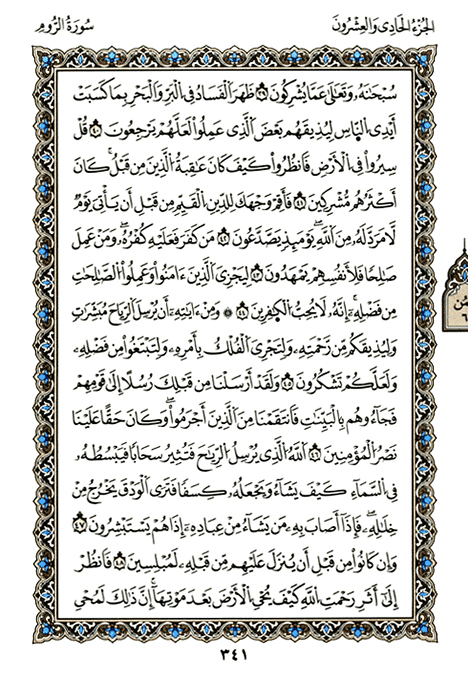 الجُزْءُ الحَادِى وَالعِشْرُونَ
سُورَةُ الرُّومِ
سُبْحَٰنَهُۥ وَتَعَٰلَىٰ عَمَّا يُشْرِكُونَ ٣٩ ظَهَرَ الْفَسَادُ فِى الْبَرِّ وَالْبَحْرِ بِمَا كَسَبَتْ
أَيْدِى النَّاسِ لِيُذِيقَهُم بَعْضَ الَّذِى عَمِلُوا لَعَلَّهُمْ يَرْجِعُونَ ٤٠ قُلْ
سِيرُوا فِى الْأَرْضِ فَانظُرُوا كَيْفَ كَانَ عَٰقِبَةُ الَّذِينَ مِن قَبْلُ كَانَ
أَكْثَرُهُم مُّشْرِكِينَ ٤١ فَأَقِمْ وَجْهَكَ لِلدِّينِ الْقَيِّمِ مِن قَبْلِ أَن يَأْتِىَ يَوْمٌ
لَّا مَرَدَّ لَهُۥ مِنَ اللَّهِ يَوْمَئِذٍ يَصَّدَّعُونَ ٤٢ مَن كَفَرَ فَعَلَيْهِ كُفْرُهُۥ وَمَنْ عَمِلَ
صَٰلِحًا فَلِأَنفُسِهِمْ يَمْهَدُونَ ٤٣ لِيَجْزِىَ الَّذِينَ ءَامَنُوا وَعَمِلُوا الصَّٰلِحَٰتِ
مِن فَضْلِهِۦ إِنَّهُۥ لَا يُحِبُّ الْكَٰفِرِينَ ٤٤ ۞ وَمِنْ ءَايَٰتِهِۦ أَن يُرْسِلَ الرِّيَاحَ مُبَشِّرَٰتٍ
وَلِيُذِيقَكُم مِّن رَّحْمَتِهِۦ وَلِتَجْرِىَ الْفُلْكُ بِأَمْرِهِۦ وَلِتَبْتَغُوا مِن فَضْلِهِۦ
وَلَعَلَّكُمْ تَشْكُرُونَ ٤٥ وَلَقَدْ أَرْسَلْنَا مِن قَبْلِكَ رُسُلًا إِلَىٰ قَوْمِهِمْ
فَجَآءُوهُم بِالْبَيِّنَٰتِ فَانتَقَمْنَا مِنَ الَّذِينَ أَجْرَمُوا وَكَانَ حَقًّا عَلَيْنَا
نَصْرُ الْمُؤْمِنِينَ ٤٦ اللَّهُ الَّذِى يُرْسِلُ الرِّيَٰحَ فَتُثِيرُ سَحَابًا فَيَبْسُطُهُۥ
فِى السَّمَآءِ كَيْفَ يَشَآءُ وَيَجْعَلُهُۥ كِسَفًا فَتَرَى الْوَدْقَ يَخْرُجُ مِنْ
خِلَٰلِهِۦ فَإِذَا أَصَابَ بِهِۦ مَن يَشَآءُ مِنْ عِبَادِهِۦ إِذَا هُمْ يَسْتَبْشِرُونَ ٤٧
وَإِن كَانُوا مِن قَبْلِ أَن يُنَزَّلَ عَلَيْهِم مِّن قَبْلِهِۦ لَمُبْلِسِينَ ٤٨ فَانظُرْ
إِلَىٰ أَثَرِ رَحْمَتِ اللَّهِ كَيْفَ يُحْىِ الْأَرْضَ بَعْدَ مَوْتِهَا إِنَّ ذَٰلِكَ لَمُحْىِ
٣٤١